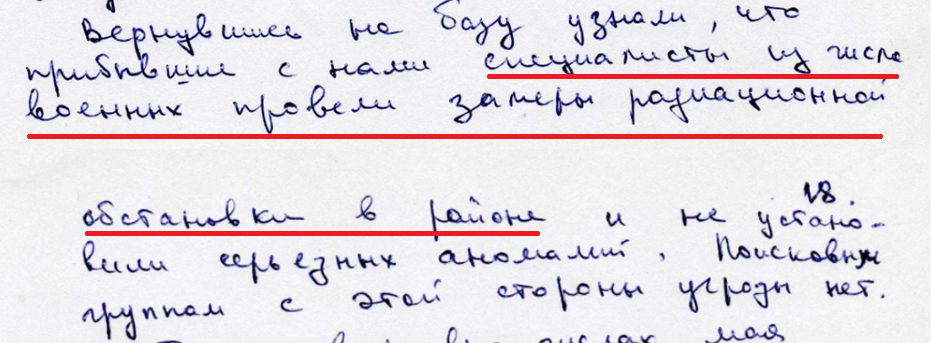 Вернувшись на базу узнали, что
прибывшие с нами специалисты из числа
военных провели замеры радиационной
18.
обстановки в районе и не устано-
вили серьезных аномалий. Поисковым
группам с этой стороны угрозы нет.
мая